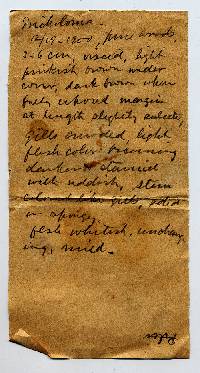 Tricholoma.
12/19-1900, pine woods,
2-6 cm, viscid, light
pinkish brown under
cover, dark brown when
fully exposed margin
at length slightly sulcate,
Gills crowded light
flesh color becoming
darker & stained
with reddish, stem
colored like gills, solid
or spongy,
flesh whitish, unchang
ing, mild.